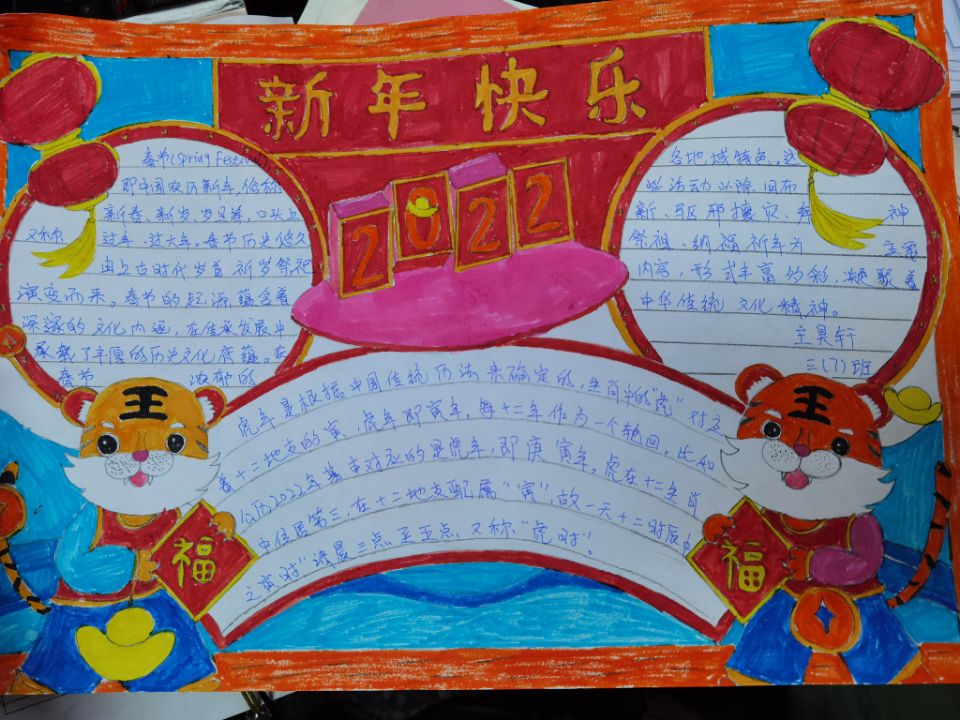 新年快乐
2022
春节(Spring Festival)
即中国农历新年,俗称
新春、新岁、岁旦等,口头上
又称 过年、过大年。春节历史悠久
由上古时代岁首祈岁祭祀
演变而来。春节的起源蕴含着
深邃的文化内涵,在传承发展中
承载了丰厚的历史文化底蕴。在
春节 浓郁的
各地域特色。这
些活动以除旧布
新、驱邪攘灾、拜 神
祭祖、纳福祈年为 主要
内容,形式丰富多彩,凝聚着
中华传统文化精神。
王昊轩
三(7)班
虎年是根据中国传统历法来确定的,生肖中的"虎"对应
着十二地支的寅,虎年即寅年,每十二年作为一个轮回。比如
公历2022年基本对应的是虎年,即庚寅年。虎在十二生肖
中位居第三,在十二地支配属"寅",故一天十二时辰中
之"寅时"清晨三点至五点,又称"虎时"。
王
王
福
福